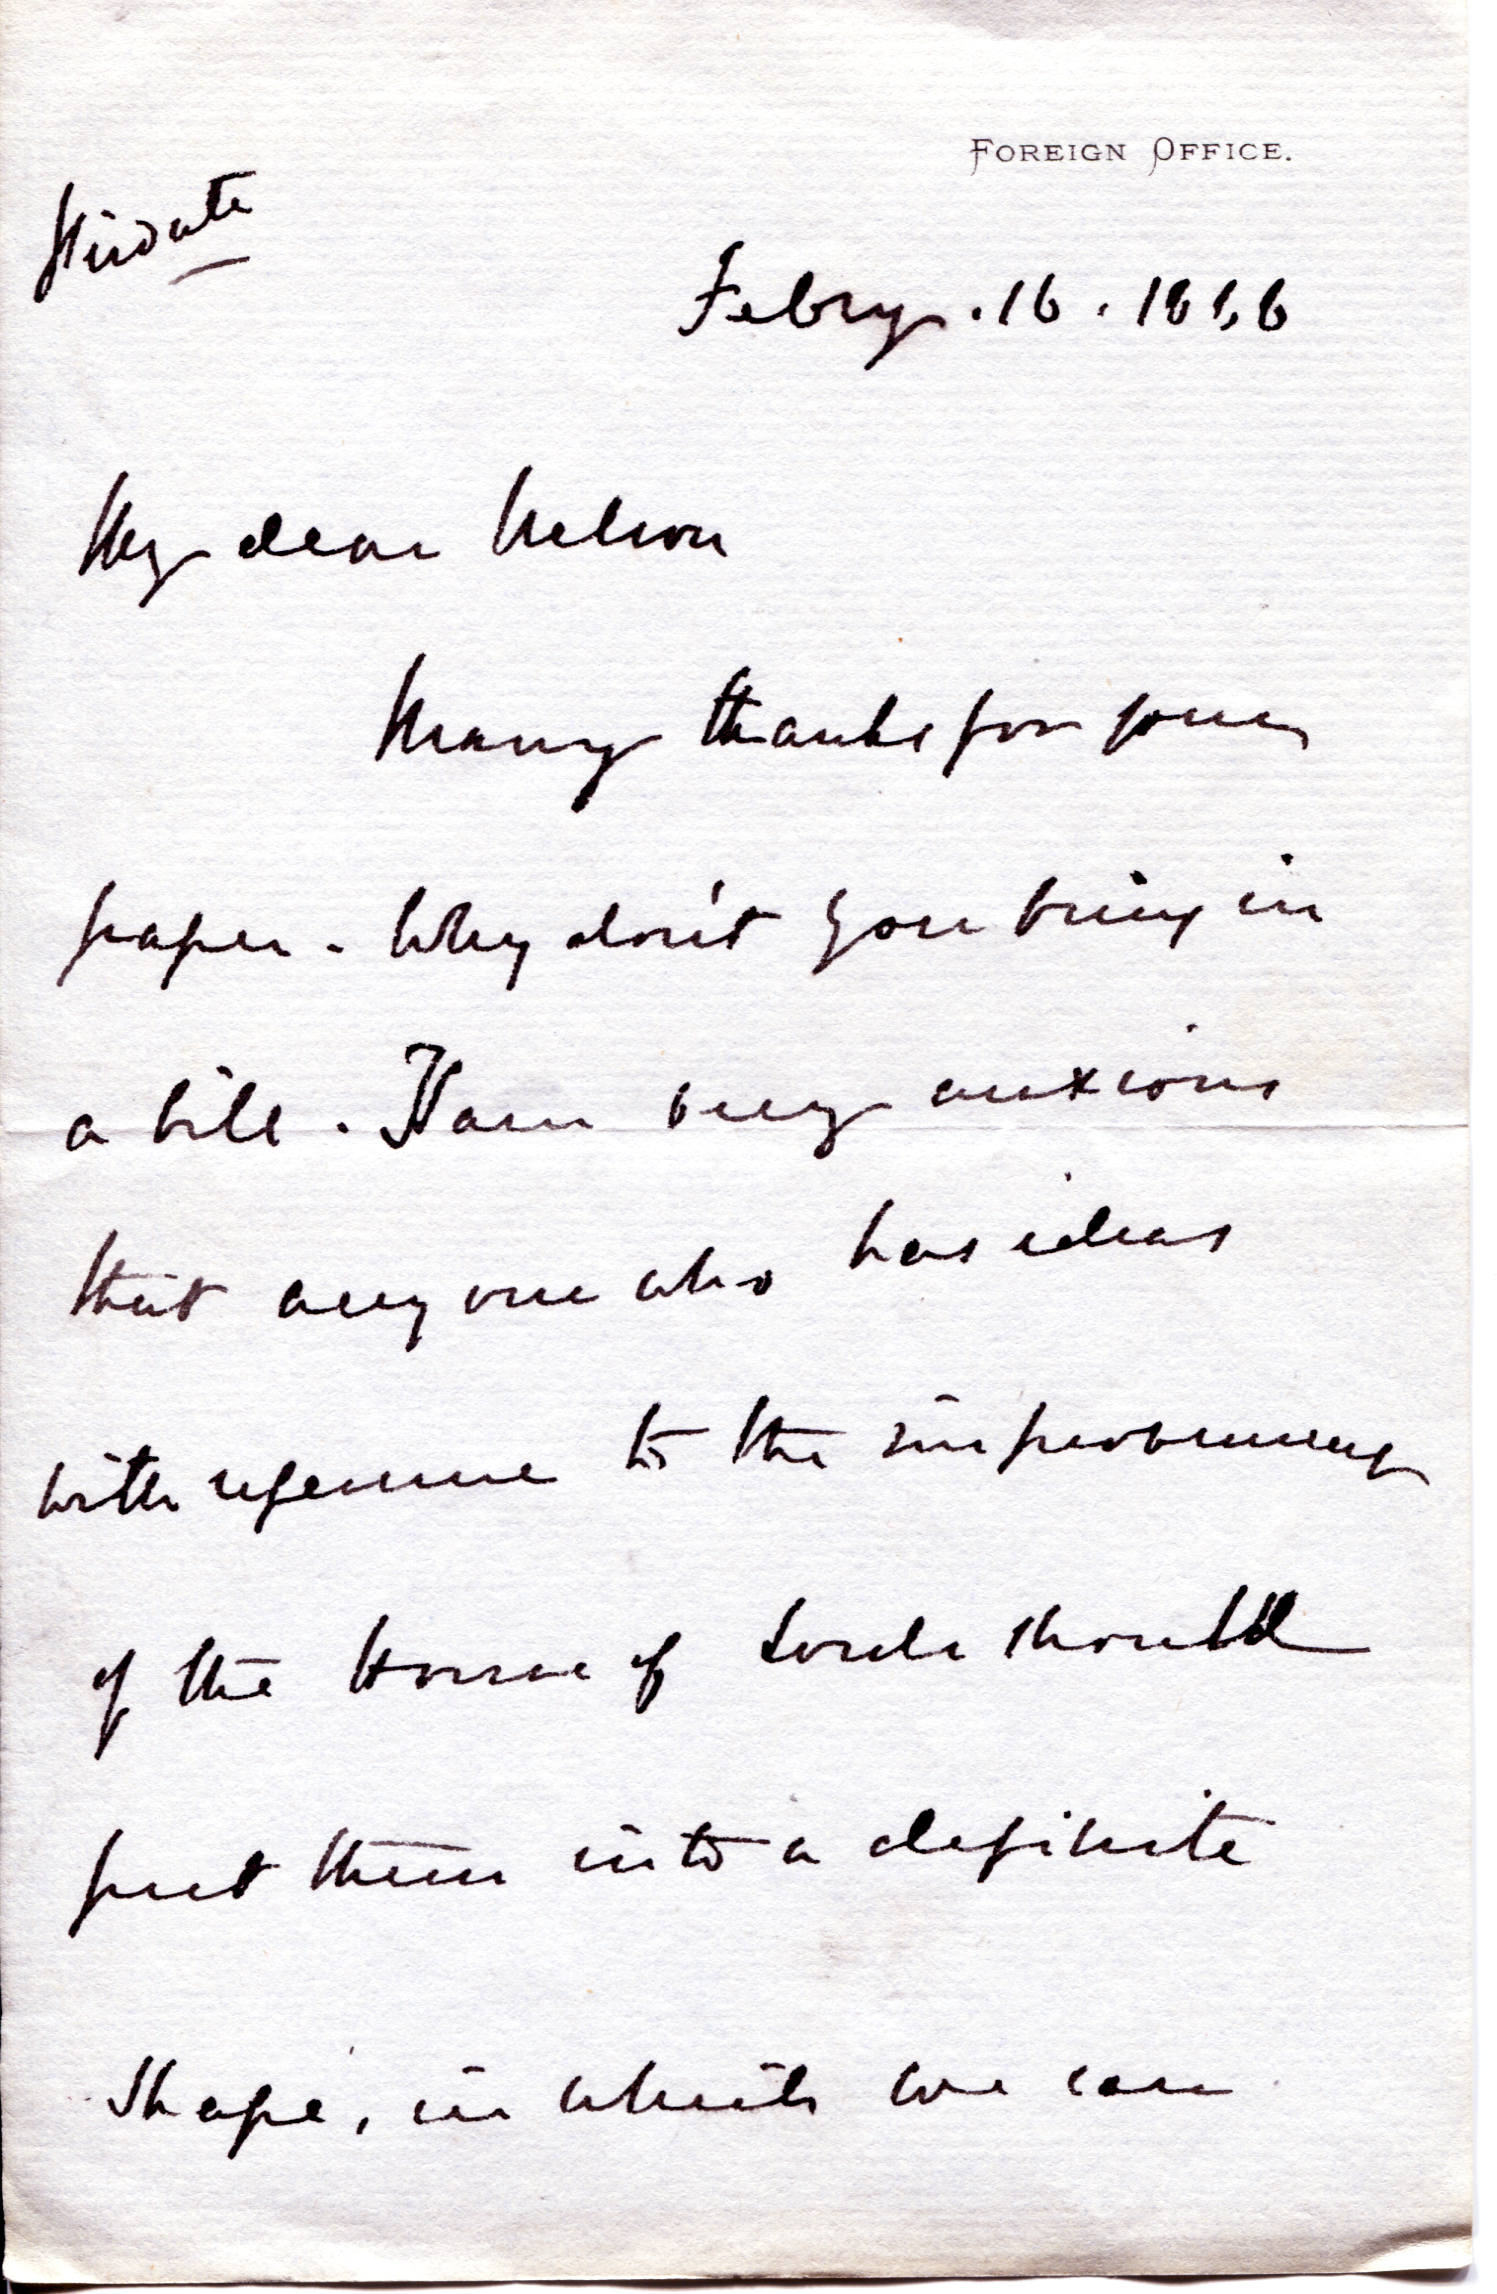 FOREIGN OFFICE.
Private
Febry. 16.
My dear Nelson
Many thanks for your
paper. Why don't you bring in
a bill. I am very anxious
that any one who has ideas
with reference to the improvement
of the House of Lords should
put them into a definite
shape, in which we can